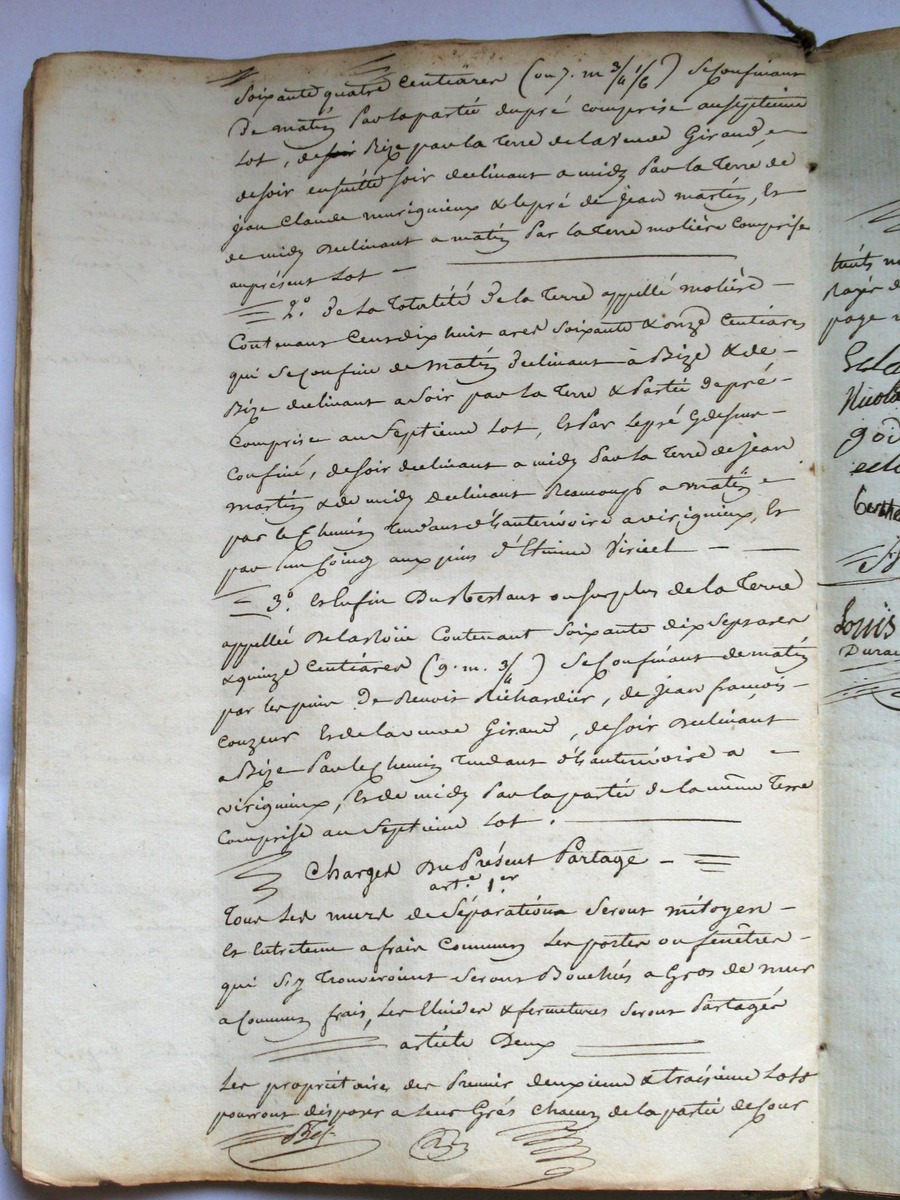 Soixante quatre Centiares (ou 7. m 3/4 1/6) Se Confinant
De matin Par la partie du pré comprise au Septième
Lot, de Bize par la Terre de la veuve Giraud,
de soir ensuitte soir declinant a midy Par la Terre de
jean Claude murigneux & le pré de jean martin, Et
de midy Declinant a matin Par la Terre molière Comprise
au présent Lot —
2.° de la Totalité de la Terre appellé molière —
Contenant Cent dix huit ares Soixante & onze Centiares
qui Se Confine de Matin Declinant à Bize & de —
Bize declinant a Soir par la Terre & Partie de pré —
Comprise au Septième Lot, Et Par le pré
Confiné, de soir declinant a midy Par la Terre de jean
martin & de midy declinant Beaucoup a matin
par le Chemin Tendant d'Hauterivoire a virignieux, Et
par un Coing aux pins d'Etienne Viricel — —
— 3.° Et Enfin Du Restant ou Surplus de la Terre
appellée Contenant Soixante dix Sept ares
& quinze Centiares (9. m. 3/4) Se Confinant de matin
par les pins De Benoit Richardier, de jean françois —
Couzeur Et de la veuve Giraud, de soir Declinant
a Bize Par le Chemin Tendant d'Hauterivoire a —
virignieux, Et de midy Par la partie de la même Terre
Comprise au Septième Lot.
Charges Du Présent Partage —
art.e 1.er
Tous Les murs de Séparation Seront mitoyen —
Et Entretenu a frais Communs Les portes ou fenêtres —
qui Si y Trouveroient Seront Bouchés a Gros de mur
a Commun frais, Les & fermetures Seront Partagés
article Deux
Les propriétaires des Premier deuxieme & troisieme Lots
pourront disposer a Leur Grés Chacun de la partie de Cour
Louis
Durand